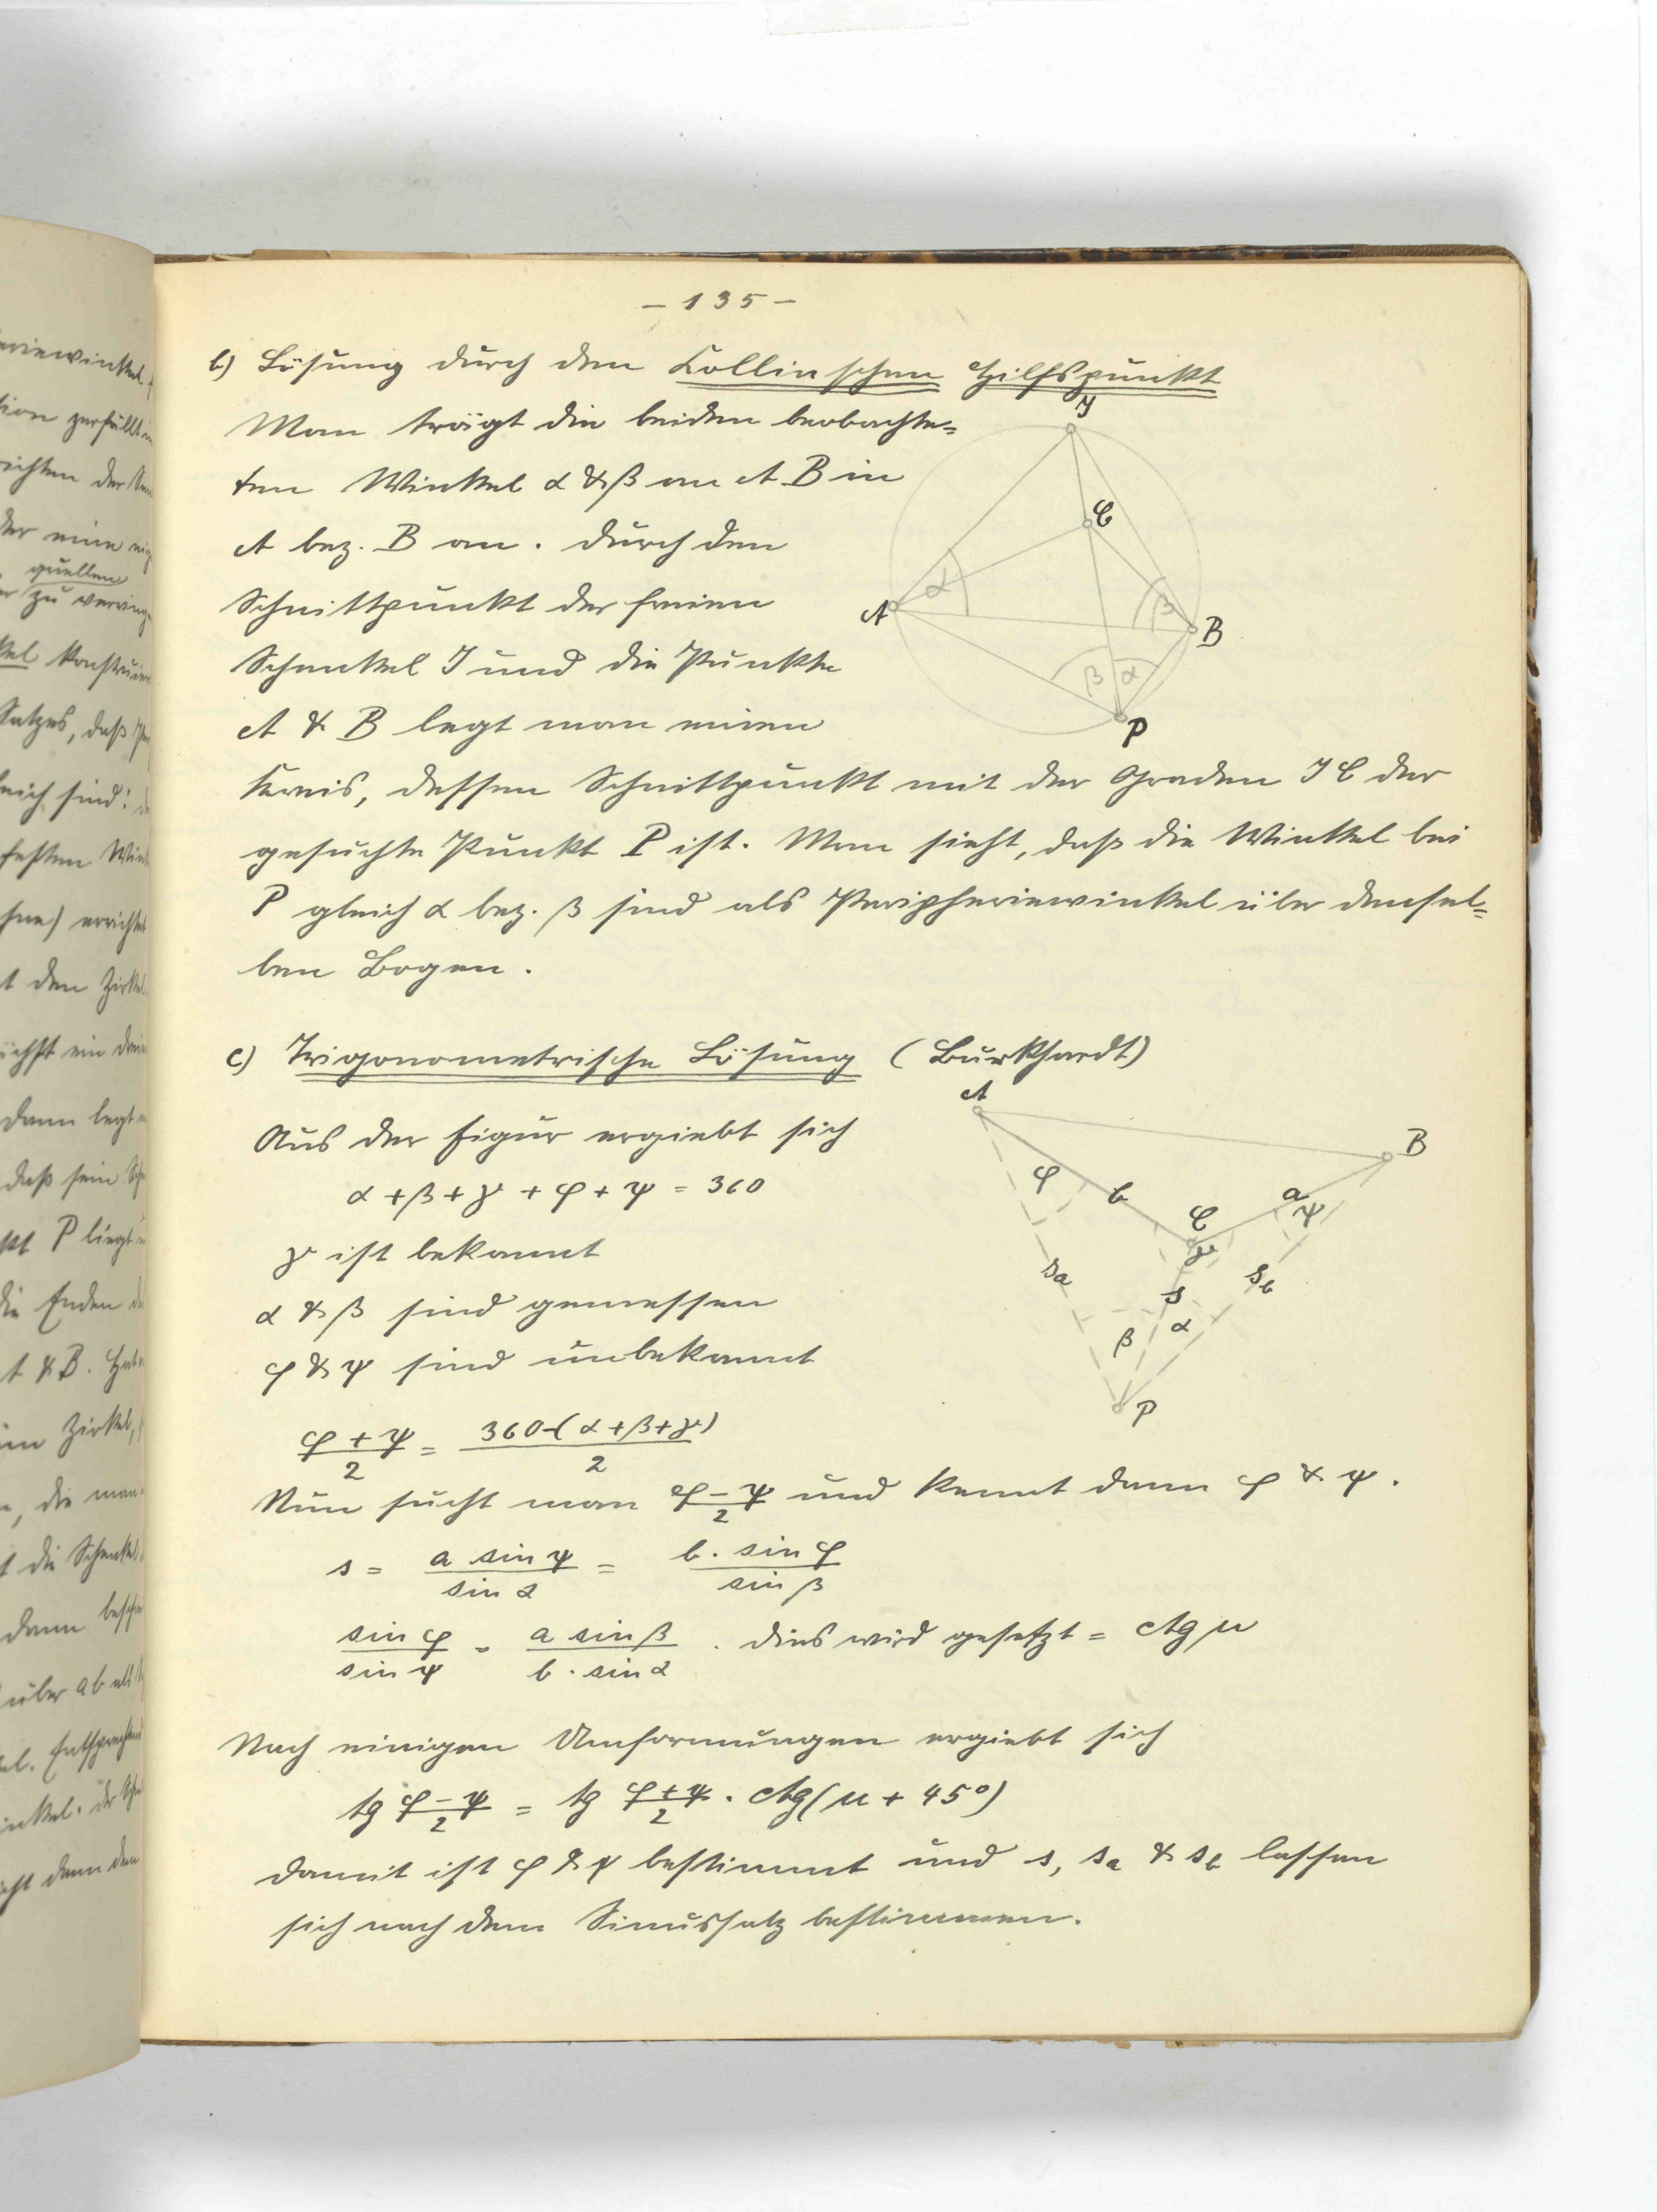 - 135 -
b) Lösung durch den Collinschen Hilfspunkt
Man trägt die beiden beobachte=
ten Winkel α & β an A B in
A bez. B an. Durch den
Schnittpunkt der freien
Schenkel J und die Punkte
A & B legt man einen
Kreis, dessen Schnittpunkt mit der Graden J C der
gesuchte Punkt P ist. Man sieht, daß die Winkel bei
P gleich α bez. β sind als Peripheriewinkel über densel=
ben Bogen.
J
C
α
A
β
B
β α
P
c) Trigonometrische Lösung (Burkhardt)
Aus der Figur ergiebt sich
α + β + γ + φ + ψ = 360
γ ist bekannt
α & β sind gemessen
φ & ψ sind unbekannt
A
B
φ
b
a
C
ψ
γ
sa
s
sb
β α
P
φ + ψ / 2 = 360-(α+β+γ) / 2
Nun sucht man φ - ψ / 2 und kennt dann φ & ψ.
s = a sin ψ / sin α = b. sin φ / sin β
sin φ / sin ψ = a sin β / b · sin α . Dies wird gesetzt = ctg μ
Nach einigen Umformungen ergiebt sich
tg φ - ψ / 2 = tg φ + ψ / 2 · ctg (μ + 45°)
Damit ist φ & ψ bestimmt und s, sa & sb lassen
sich nach dem Sinussatz bestimmen.